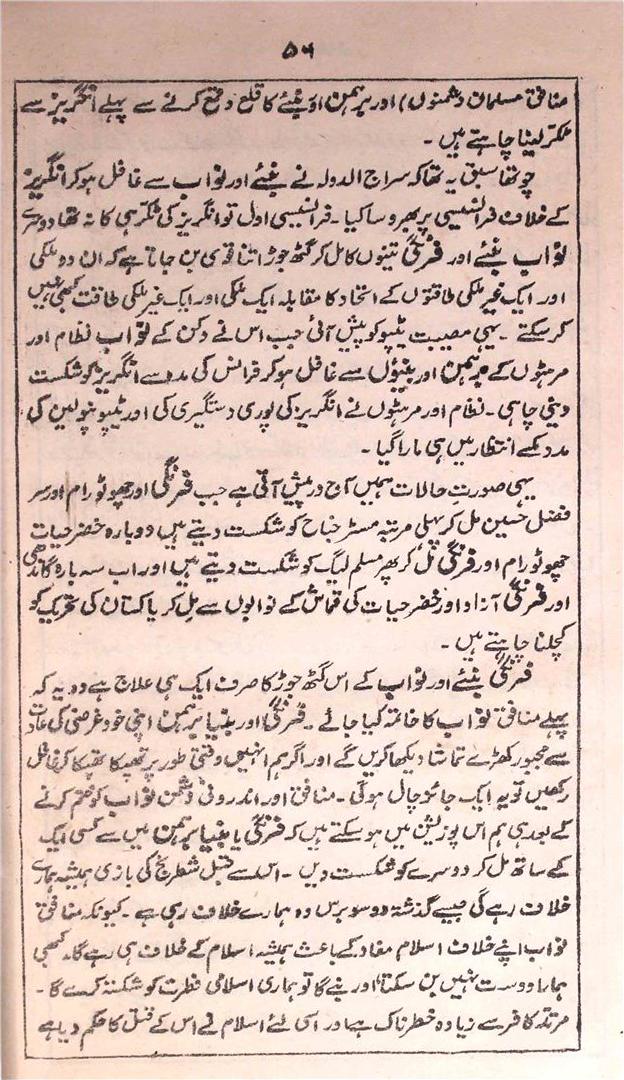 ۵۶
منافق مسلمان دشمنوں) اور برہمن اوبنئے کا قلع وقمع کرنے سے پہلے انگریز سے
ٹکر لینا چاہتے ہیں۔
چوتھا سبق یہ تھا کہ سراج الدولہ نے بنئے اور نواب سے غافل ہوکر انگریز
کے خلاف فرانسیسی پر بھروسا کیا۔ فرانسیسی اول تو انگریز کی ٹکر ہی کا نہ تھا دوسرے
نواب بنئے اور فرنگی تینوں کا مل کر گٹھ جوڑ اتنا قوی بن جاتا ہے کہ ان دو ملکی
اور ایک غیر ملکی طاقتوں کے اتحاد کا مقابلہ ایک ملکی اور ایک غیر ملکی طاقت کبھی نہیں
کر سکتے۔ یہی مصیبت ٹیپو کو پیش آئی جب اس نے دکن کے نواب نظام اور
مرہٹوں کے برہمن اور بنیوں سے غافل ہوکر فرانس کی مدد سے انگریز کو شکست
دینی چاہی۔ نظام اور مرہٹوں نے انگریز کی پوری دستگیری کی اور ٹیپو نپولین کی
مدد کے انتظار میں ہی مارا گیا۔
یہی صورت حالات ہمیں آج درپیش آتی ہے جب فرنگی اور چھوٹو رام اور سر
فضل حسین مل کر پہلی مرتبہ مسٹر جناح کو شکست دیتے ہیں دوبارہ خضر حیات
چھوٹو رام اور فرنگی مل کر پھر مسلم لیگ کو شکست دیتے ہیں اور اب سہ بارہ گاندھی
اور فرنگی آزاد اور خضر حیات کی قماش کے نوابوں سے مل کر پاکستان کی تحریک کو
کچلنا چاہتے ہیں۔
فرنگی بنئے اور نواب کے اس گٹھ جوڑ کا صرف ایک ہی علاج ہے وہ یہ کہ
پہلے منافق نواب کا خاتمہ کیا جائے۔ فرنگی اور بنیا برہمن اپنی خود غرضی کی عادت
سے مجبور کھڑے تماشا دیکھا کریں گے اور اگر ہم انہیں وقتی طور پر تھپکا تھپکا کر غافل
رکھیں تو یہ ایک جائز چال ہوگی۔ منافق اور اندرونی دشمن نواب کو ختم کرنے
کے بعد ہی ہم اس پوزیشن میں ہو سکتے ہیں کہ فرنگی یا بنیا برہمن میں سے کسی ایک
کے ساتھ مل کر دوسرے کو شکست دیں۔ اس سے قبل شطرنج کی بازی ہمیشہ ہمارے
خلاف رہے گی جیسے گذشتہ دو سو برس وہ ہمارے خلاف رہی ہے۔ کیونکہ منافق
نواب اپنے خلاف اسلام مفاد کے باعث ہمیشہ اسلام کے خلاف ہی رہے گا۔ کبھی
ہمارا دوست نہیں بن سکتا اور بنے گا تو ہماری اسلامی فطرت کو شکستہ کرے گا۔
مرتد کافر سے زیادہ خطرناک ہے اور اسی لئے اسلام نے اس کے قتل کا حکم دیا ہے